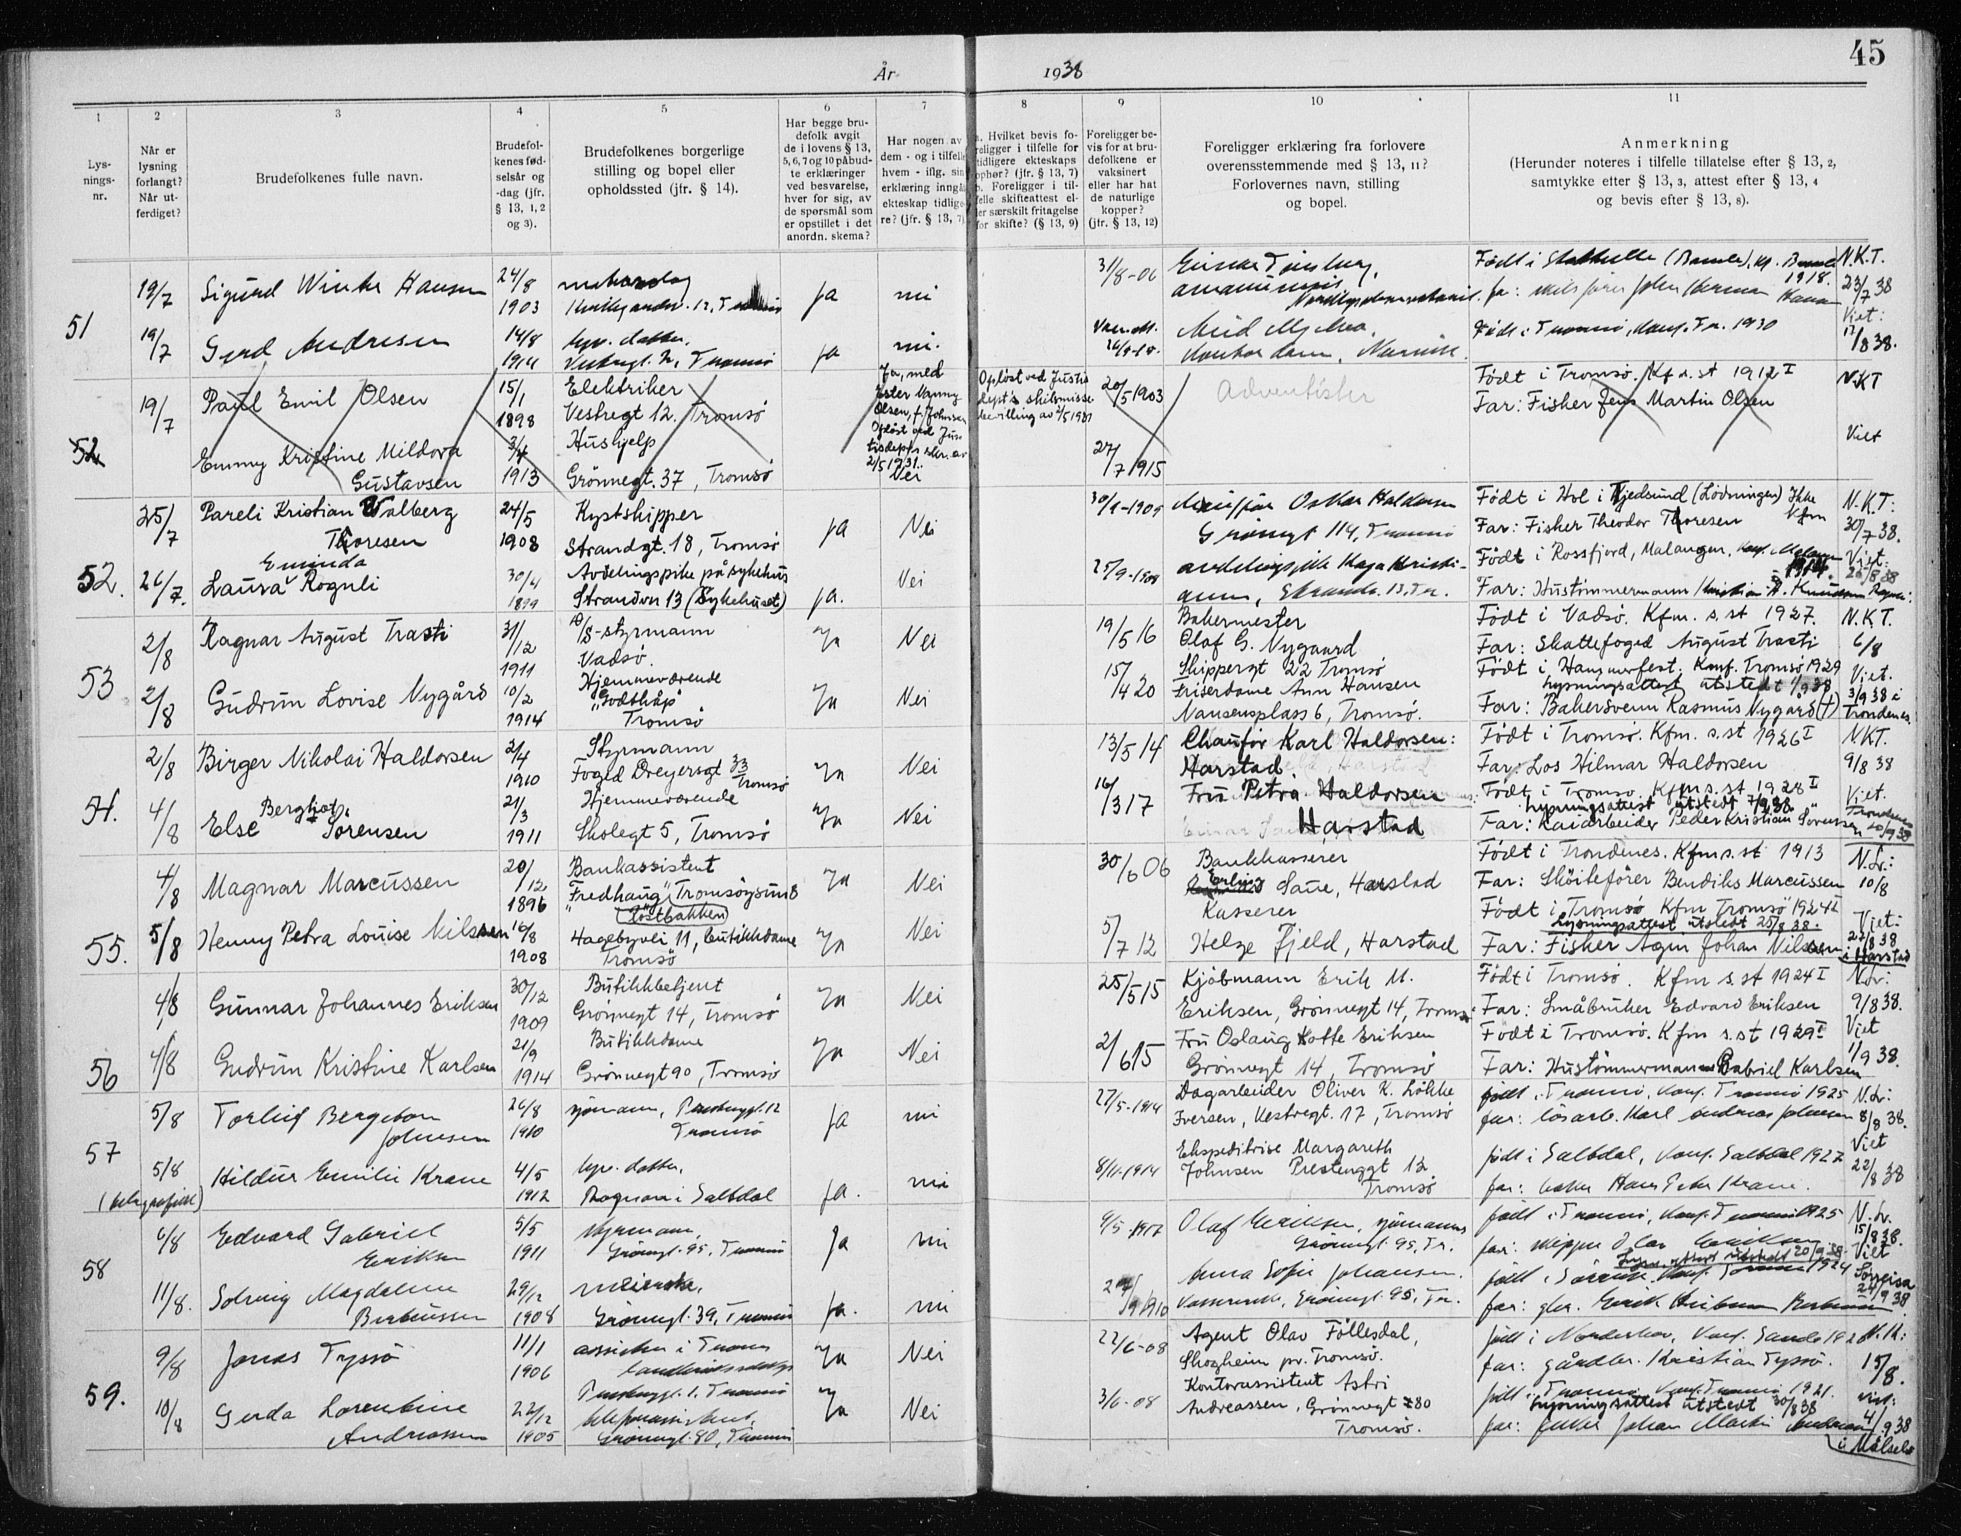 45
År 1938
1 2 3 4 5 6 7 8 9 10 11
Lysningsnr.
Når er lysning forlangt? Når utferdiget?
Brudefolkenes fulle navn.
Brudefolkenes fødselsår og -dag (jfr. § 13, 1, 2 og 3).
Brudefolkenes borgerlige stilling og bopel eller opholdssted (jfr. § 14).
Har begge brudefolk avgit de i lovens § 13, 5, 6, 7 og 10 påbudte erklæringer ved besvarelse, hver for sig, av de spørsmål som er opstillet i det anordn. skema?
Har nogen av dem - og i tilfelle hvem - iflg. sin erklæring inngått ekteskap tidligere? (jfr. § 13, 7)
a. Hvilket bevis foreligger i tilfelle for tidligere ekteskaps ophør? (jfr. § 13, 7) b. Foreligger i tilfelle skifteattest eller særskilt fritagelse for skifte? (§ 13, 9)
Foreligger bevis for at brudefolkene er vaksinert eller har hat de naturlige kopper? (jfr. § 13, 12)
Foreligger erklæring fra forlovere overensstemmende med § 13, 11? Forlovernes navn, stilling og bopel.
Anmerkning (Herunder noteres i tilfelle tillatelse efter § 13, 2, samtykke efter § 13, 3, attest efter § 13, 4 og bevis efter § 13, 8).
51
19/7 Sigurd Winke Hansen 24/8 1903
Tromsø ja nei 31/8-06
Født i Stathelle (Bamle), 1918.
N.K.T. 23/7 38
19/7 Gerd Andresen 14/8
Tromsø ja nei.
Narvik.
Født i Tromsø, konf. Tr. 1930
Viet: 17/8 38.
52
19/7 Paul Emil Olsen 15/1 1898
Elektriker
Vestregt 12. Tromsø
Ja, med Ester Nanny Olsen, f. Johnsen Opløst ved Justisdept.s skr. av 2/5 1931.
Opløst ved Justisdept's skilsmissebevilling av 2/5 1931
20/5 1903 Adventister
Født i Tromsø. Kf s. st 1912 I
Far: Fisker Jens Martin Olsen
N.K.T
Emmy Kristine Mildora Gustavsen 3/4 1913
Hushjelp
Grønnegt. 37, Tromsø
Nei
27/7 1915
Viet
52.
25/7 Pareli Kristian Valberg Thoresen 24/5 1908
Kystskipper
Strandgt. 18, Tromsø
ja Nei 30/9-1909
Oskar Haldorsen
Grønnegt 114, Tromsø
Født i Hol i Tjedsund (Lödningen) Ikke Kfm
Far: Fisker Theodor Thoresen
N.K.T: 30/7 38.
26/7. Laura Eminda Rognli 30/4 1899
Avdelingspike på sykehus
Strandvn 13 (Sykehuset)
ja. Nei 25/9-1908
Født i Rossfjord, Malangen, konf. Malangen 1914.
Far: Hustömmermann Kristian A. Knudsen Rognli.
Viet: 26/8 38
53
2/8 Ragnar August Trasti 31/12 1911
D/S-styrmann
Vadsø.
Ja Nei 19/5 16
Bakermester
Olaf G. Nygaard
Skippergt 22 Tromsø
Født i Vadsø. Kfm. s. st 1927.
Far: Skattefoged August Trasti
N.K.T. 6/8
2/8 Gudrun Lovise Nygård 10/2 1914
Hjemmeværende
"Godthåp"
Tromsø
Ja Nei 15/4 20
Friserdame Ann Hansen
Nansensplass 6, Tromsø.
Født i Hammerfest. Konf. Tromsø 1929
Lysningsattest utstedt 1/9 38
Far: Bakersvenn Rasmus Nygård (†)
Viet. 3/9 38 i Trondenes.
54.
2/8 Birger Nikolai Haldorsen 2/4 1910
Styrmann
Foged Dreyersgt 33 Tromsø
Ja Nei 13/5 14
Chaufør Karl Haldorsen:
Harstad.
Født i Tromsø. Kfm. s. st 1926 I
Far: Los Hilmar Haldorsen
NKT. 9/8 38
4/8 Else Berghot Sörensen 21/3 1911
Hjemmeværende
Skolegt 5, Tromsø
Ja Nei 16/3 17
Fru Petra Haldorsen
Harstad
Født i Tromsø. Kfm s. st 1928 I
Lysningsattest utstedt 7/9 38
Far: Kaiarbeider Peder Kristian Sörensen
Viet. Trondenes 10/9 38
55.
4/8 Magnar Marcussen 20/12 1896
Bankassistent
"Fredhaug" Tromsøysund
(Tøstbakken)
Ja Nei 30/6 06
Bankkasserer
Erling Saue, Harstad
Født i Trondenes. Kfm s. st 1913
Far: Sköitefører Bendiks Marcussen
N.Lv.: 10/8
5/8 Henny Petra Louise Nilssen 16/8 1908
Hagebyvei 11, butikkdame
Tromsø
Ja Nei 5/7 12
Kasserer
Helge Fjeld, Harstad
Født i Tromsø Kfm Tromsø 1924 I
Lysningsattest utstedt 25/8 38.
Far: Fisker Agin Johan Nilssen
Viet: 27/8 38 i Harstad
56
4/8 Gunnar Johannes Eriksen 30/12 1909
Butikkbetjent
Grønnegt 14, Tromsø
Ja Nei 25/5 15
Kjøbmann Erik M.
Eriksen, Grönnegt 14, Tromsø
Født i Tromsø. Kfm s. st 1924 I
Far: Småbruker Edvard Eriksen
N.Lv: 9/8 38.
4/8 Gudrun Kristine Karlsen 21/9 1914
Butikkdame
Grønnegt 90, Tromsø
Ja Nei 2/6 15
Fru Oslaug Kotte Eriksen
Grønnegt 14, Tromsø
Født i Tromsø. Kfm s. st 1929 I
Far: Hustömmermann Gabriel Karlsen
Viet 1/9 38.
57
5/8 Torleif Bergeton Johnsen 26/8 1910
sjømann, Prestenggt. 12
Tromsø
ja nei 27/5-1914
Dagarbeider Oliver K. Løkke
Iversen, Vestregt. 17, Tromsø
født i Tromsø, konf. Tromsø 1925
far: løsarb. Karl Andreas Johnsen
N.Lv: 8/8 38.
5/8 Hildur Emilie Krane 4/5 1912
hjv. datter,
Rognan i Saltdal
ja. nei 8/11-1914
Ekspeditrise Margareth
Johnsen Prestenggt 12
Tromsø
født i Saltdal, konf. Saltdal 1927
far: Hans Peter Krane.
Viet 22/8 38
58
6/8 Edvard Gabriel Eriksen 5/5 1911
styrmann,
Grönnegt. 95, Tromsø
ja nei
Olaf Eriksen, sjømann
Grönnegt. 95, Tr.
født i Tromsø, konf. Tromsø 1925
far: skipper Olav Eriksen
N.Lv. 15/8 38.
11/8. Solveig Magdalene Berteussen 29/12 1908
meierske,
Grönnegt. 39, Tromsø
ja. nei
Anna Sofie Johansen.
Grönnegt. 95, Tr.
Viet Sørreisa 24/9 38
59.
9/8 Jonas Tyssø 11/1 1906
Prestenggt. 1, Tromsø
Ja Nei 22/6-08
Agent Olav Föllesdal,
Skogheim pr. Tromsø.
far: gårdbr. Kristian Tyssø.
15/8.
10/8 Gerda Lorentine Andreassen 22/12 1905
Grönnegt. 80, Tromsø
Ja Nei 3/6-08
Kontorassistent Astri
Andreassen, Grönnegt 80
Tromsø.
født i Tromsø, konf. Tromsø 1921.
Lysningsattest utstedt 30/8 38
far: fisker Johan Martin Andreassen
viet: 4/9 38 i Målselv